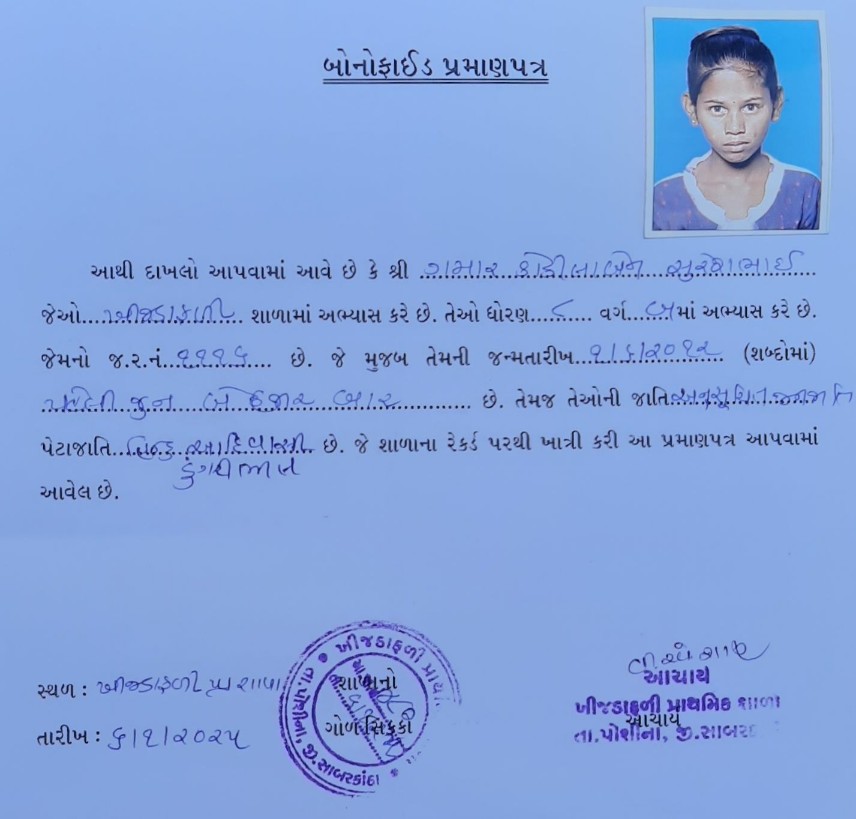 બોનોફાઈડ પ્રમાણપત્ર
આથી દાખલો આપવામાં આવે છે કે શ્રી ગમાર સુરેશભાઈ
જેઓ ખીજડાફળી શાળામાં અભ્યાસ કરે છે. તેઓ ધોરણ ૮ વર્ગ બ માં અભ્યાસ કરે છે.
જેમનો જ.ર.નં. ૧૧૧૬ છે. જે મુજબ તેમની જન્મતારીખ ૧/૬/૨૦૧૨ (શબ્દોમાં)
પહેલી જુન બે હજાર બાર છે. તેમજ તેઓની જાતિ અનુસૂચિત જનજાતિ
પેટાજાતિ હિન્દુ આદિવાસી છે. જે શાળાના રેકર્ડ પરથી ખાત્રી કરી આ પ્રમાણપત્ર આપવામાં
ડુંગરી ભીલ
આવેલ છે.
સ્થળ : ખીજડાફળી પ્રા શાળા
તારીખ : ૬/૧/૨૦૨૫
શાળાનો
ગોળ સિક્કો
ખીજડાફળી પ્રાથ
તા.પોશીના, જી.સાબરકાંઠા
આચાર્ય
ખીજડાફળી પ્રાથમિક શાળા
આચાર્ય
તા.પોશીના, જી.સાબરકાં